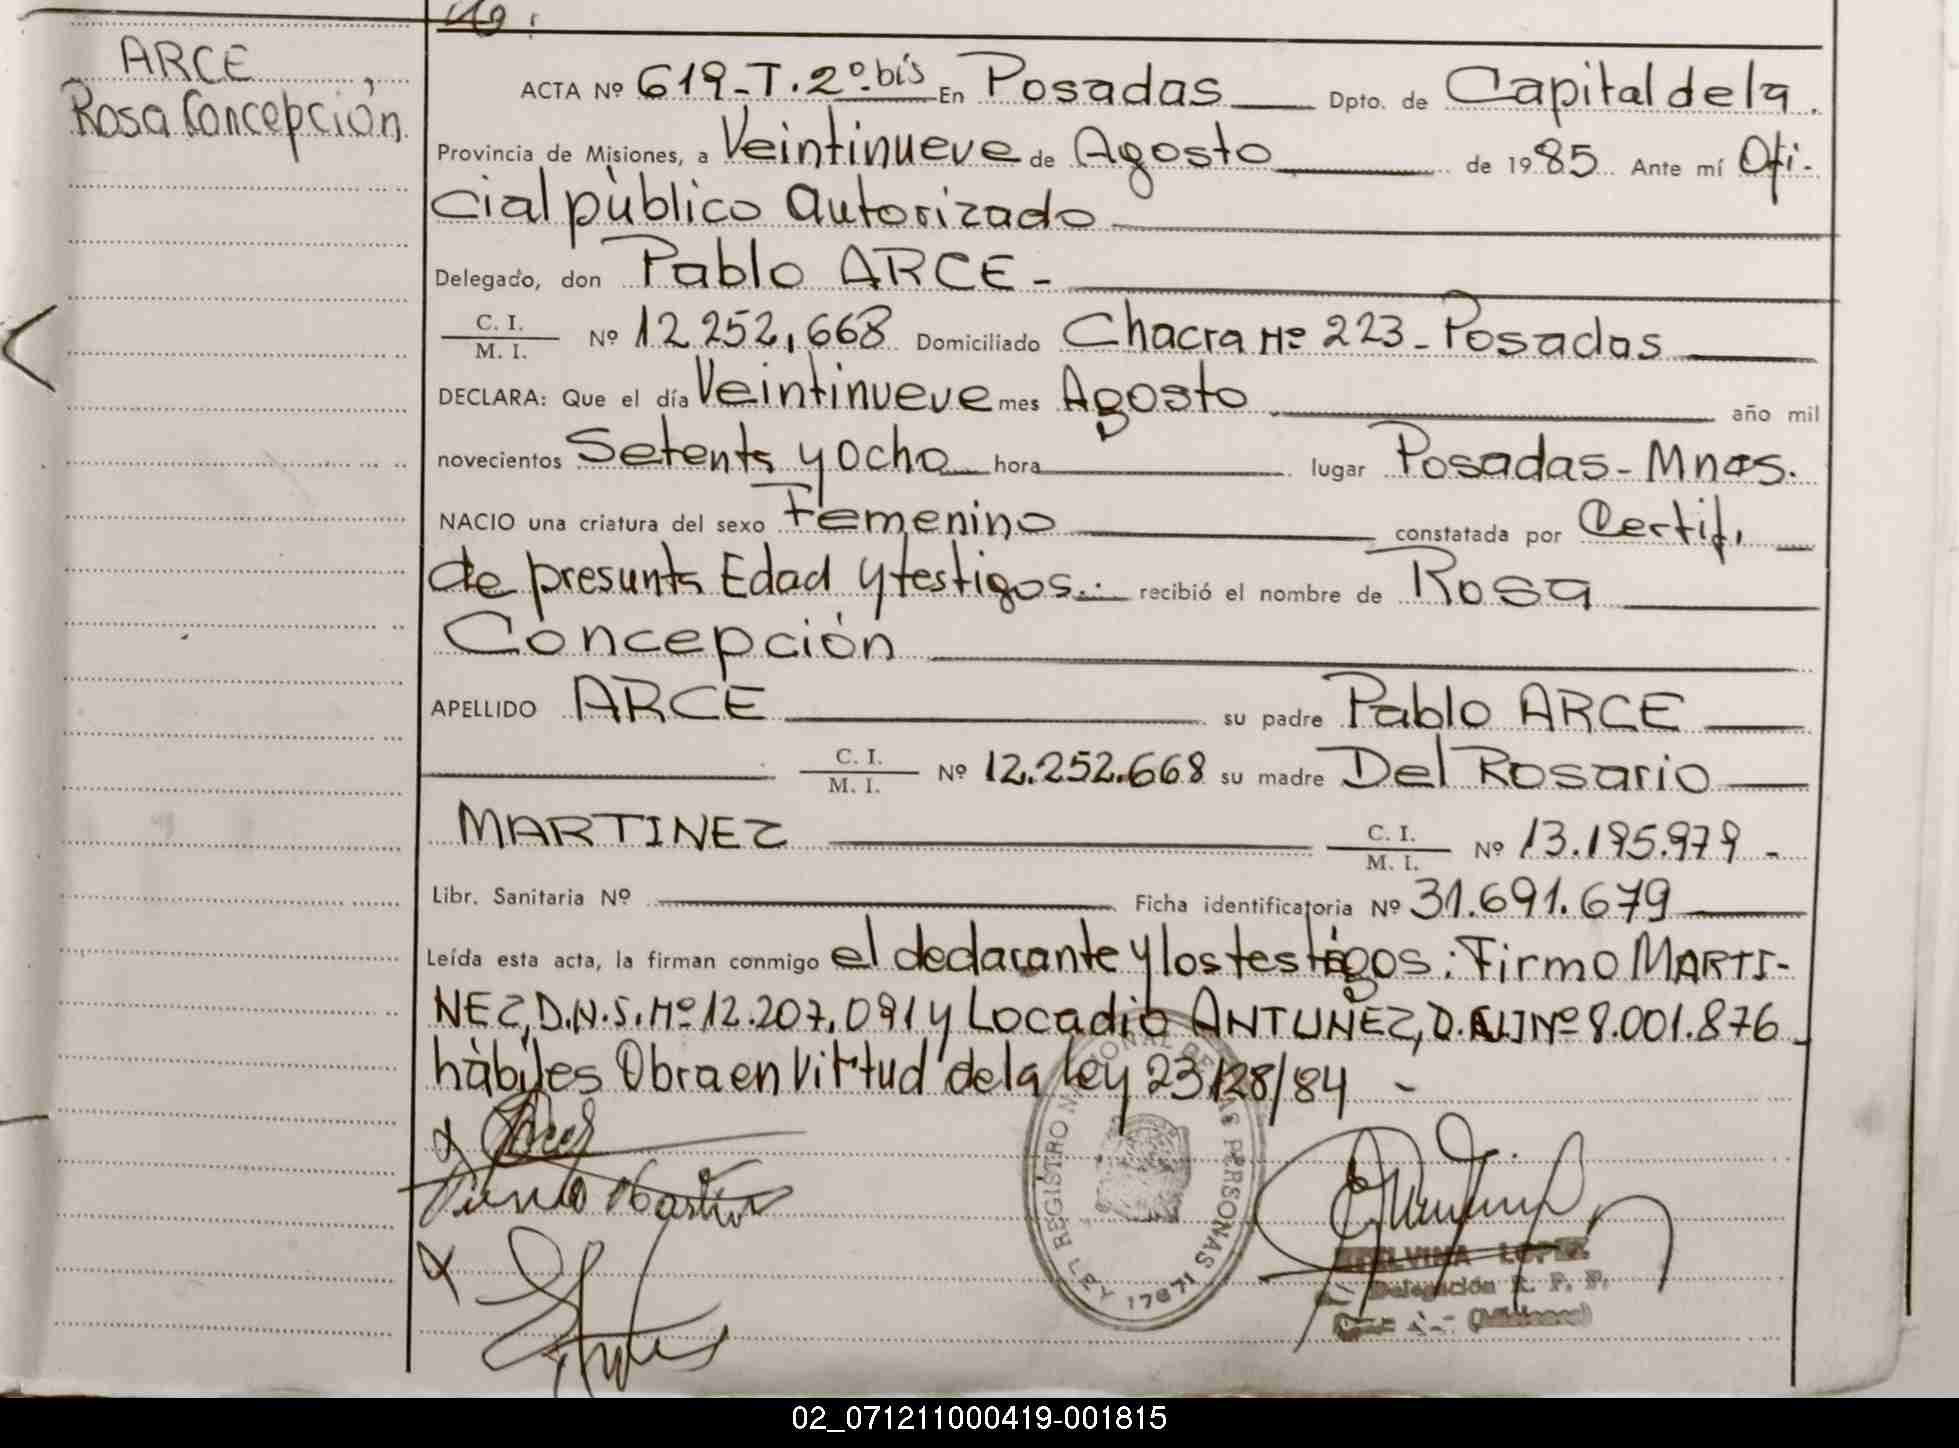 ARCE,
Rosa Concepción.
ACTA Nº 619-T.2º.bis En Posadas Dpto. de Capital de la
Provincia de Misiones, a Veintinueve de Agosto de 1985 Ante mí Ofi-
cial público Autorizado
Delegado, don Pablo ARCE-
C. I.
M. I. Nº 12.252.668 Domiciliado Chacra Nº 223-Posadas
DECLARA: Que el día Veintinueve mes Agosto año mil
novecientos Setenta y Ocho hora lugar Posadas-Mnes.
NACIO una criatura del sexo Femenino constatada por Certif.
de presunta Edad y testigos.- recibió el nombre de Rosa
Concepción
APELLIDO ARCE su padre Pablo ARCE
C. I.
M. I. Nº 12.252.668 su madre Del Rosario
MARTINEZ C. I.
M. I. Nº 13.195.979-
Libr. Sanitaria Nº Ficha identificatoria Nº 31.691.679
Leída esta acta, la firman conmigo el declarante y los testigos: Firmo MARTI-
NEZ, D.N.I. Nº 12.207.091 y Locadio ANTUNEZ, D.N.I Nº 8.001.876
hábiles Obra en Virtud de la Ley 23.128/84 -
REGISTRO NACIONAL DE LAS PERSONAS
LEY 17671
LOPEZ
Delegación R. P. P.
(Misiones)
02_071211000419-001815